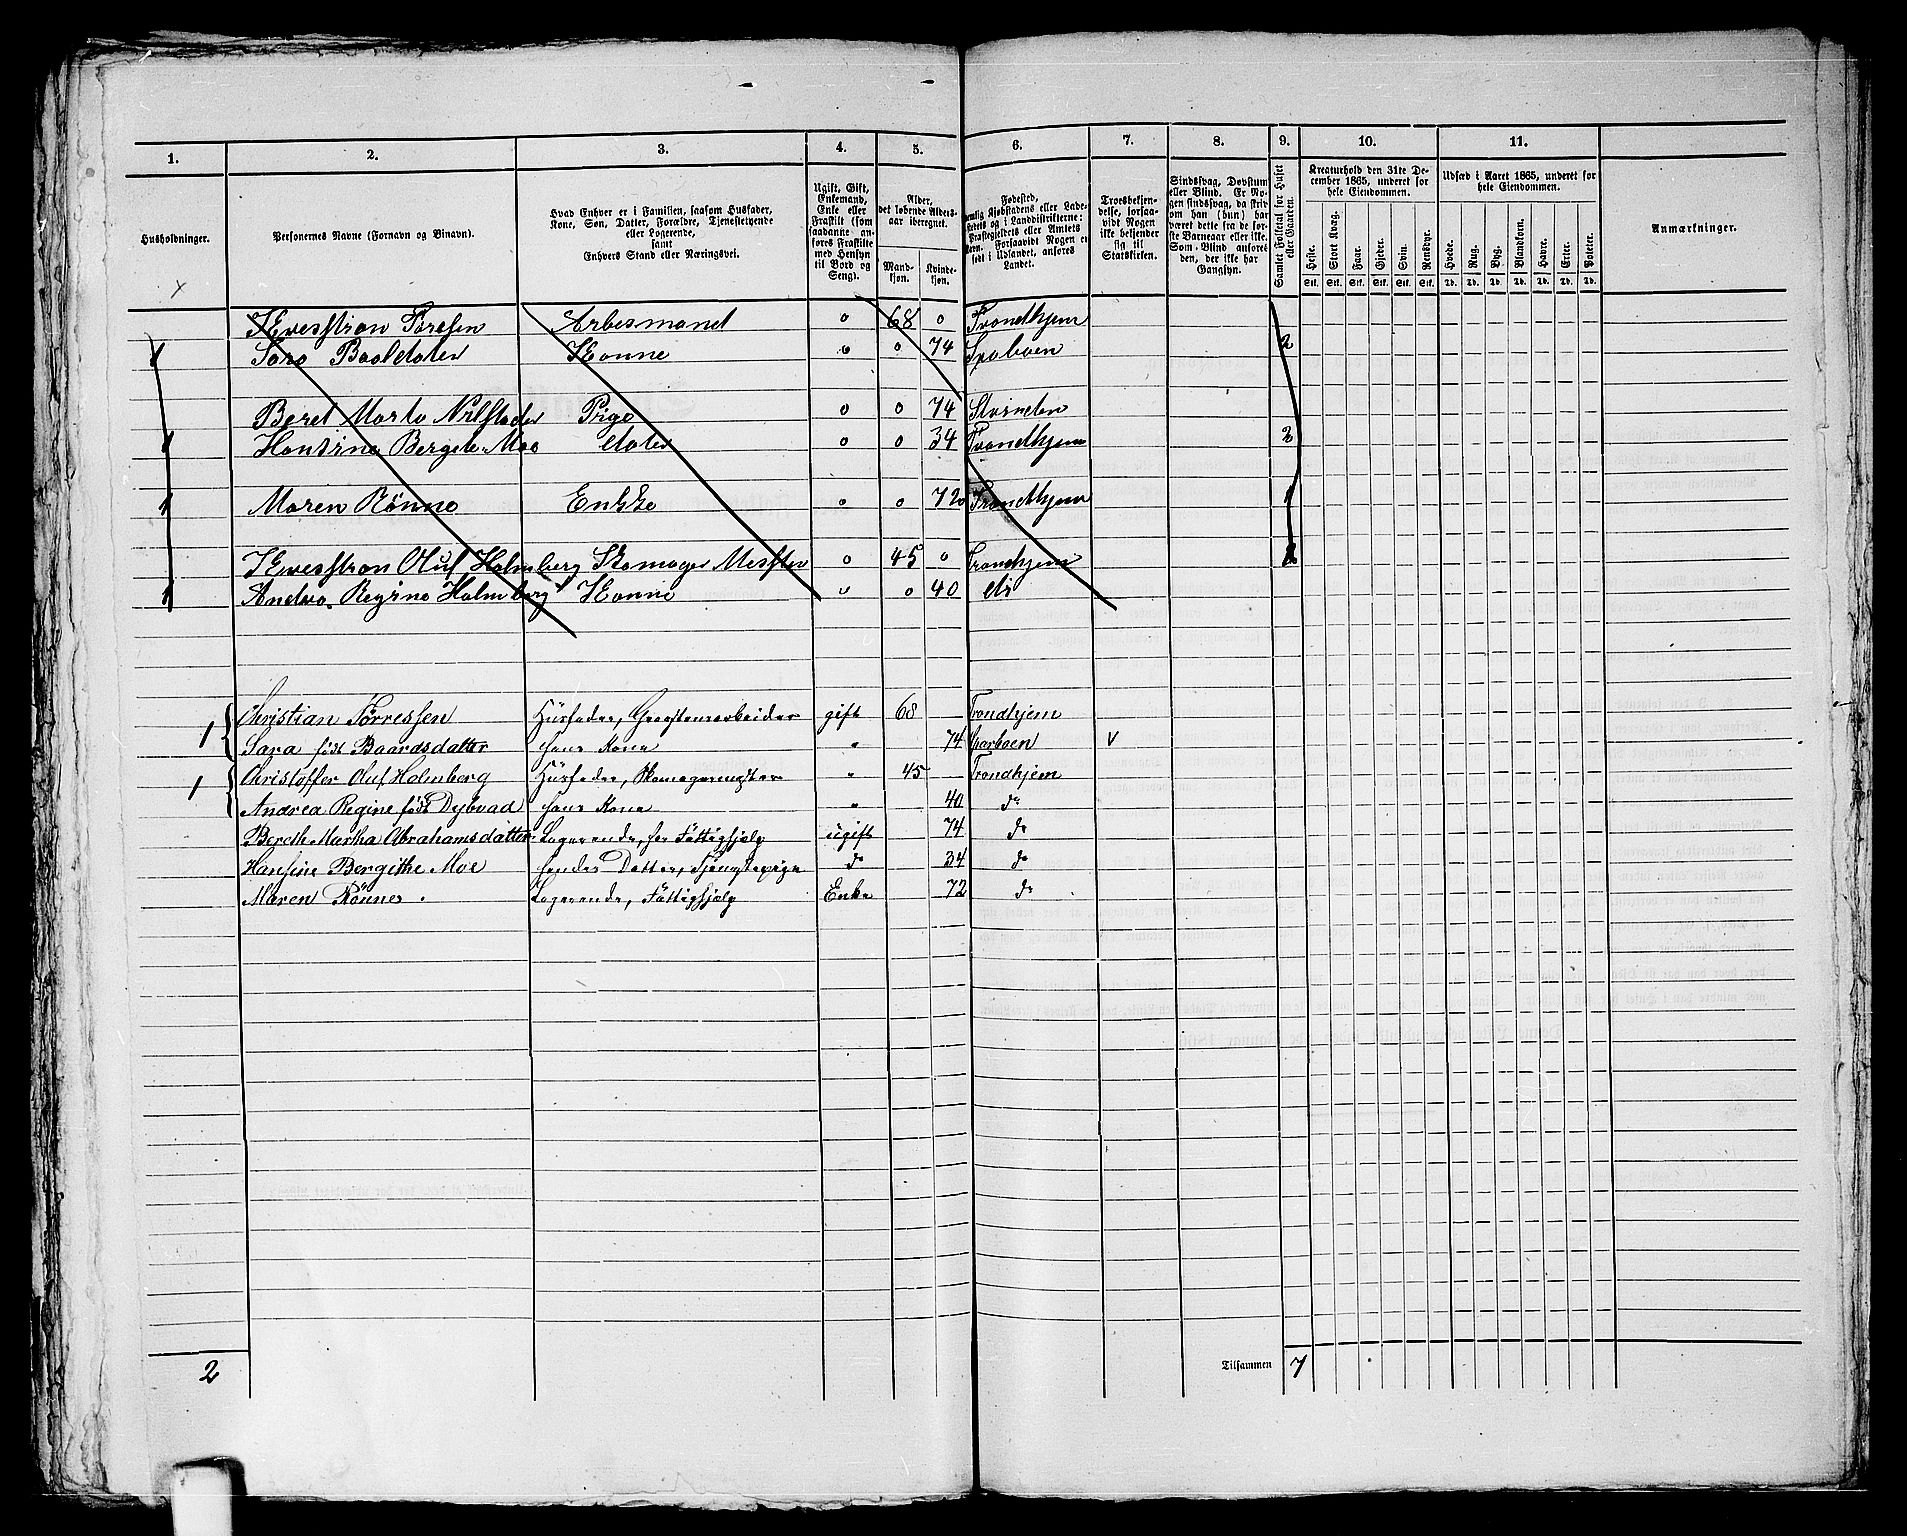 1. 2. 3. 4. 5. 6. 7. 8. 9. 10. 11.
Husholdninger.
Personernes Navne (Fornavn og Binavn).
Hvad Enhver er i Familien, saasom Husfader,
Kone, Søn, Datter, Forældre, Tjenestetyende
eller Logerende,
samt
Enhvers Stand eller Næringsvei.
Ugift, Gift,
Enkemand,
Enke eller
Fraskilt (som
saadanne an-
føres Fraskilte
med Hensyn
til Bord og
Seng).
Alder,
det løbende Alders-
aar iberegnet.
Mand-
kjøn.
Kvinde-
kjøn.
Fødested,
nemlig Kjøbstadens eller Lade-
stedets og i Landdistrikterne:
Præstegjeldets eller Amtets
Navn. Forsaavidt Nogen er
født i Udlandet, anføres
Landet.
Troesbekjen-
delse, forsaa-
vidt Nogen
ikke bekjender
sig til
Statskirken.
Sindssvag, Døvstum
eller Blind. Er No-
gen sindssvag, da skri-
ves om han (hun) har
været dette fra de før-
ste Barneaar eller ikke.
Som Blind anføres
den, der ikke har
Gangsyn.
Samlet Folketal for Huset
eller Gaarden.
Kreaturhold den 31te De-
cember 1865, underet for
hele Eiendommen.
Heste. Stort Kvæg. Faar. Gjeder. Svin. Rensdyr.
Stk. Stk. Stk. Stk. Stk. Stk.
Udsæd i Aaret 1865, underet for
hele Eiendommen.
Hvede. Rug. Byg. Blandkorn. Havre. Erter. Poteter.
Td. Td. Td. Td. Td. Td. Td.
Anmærkninger.
Toresen Arbesmand 0 68 0 Trondhjem
1 Sara Konne 0 0 74 2
Beret Marta Pige 0 0 74 Strinden
1 Hansine Moe dater 0 0 34 Trondhjem 2
1 Maren Rønne Enkke 0 0 72 Trondhjem 1
Oluf Holmberg Skomager Messter 0 45 0 Trondhjem
1 Andrea Regine Holmberg Konne 0 0 40 do 2
1 Christian Törressen Husfader, gift 68 Trondhjem
Sara født Baardsdatter hans Kone " 74 Sparboen V
1 Christoffer Oluf Holmberg Husfader, Skomagermester " 45 Trondhjem
Andrea Regine født Dybvad hans Kone " 40 do
Bereth Martha Abrahamsdatter Logerende, har Fattighjelp ugift 74 do
Hansine Bergithe Moe hendes Datter, Tjenestepige do 34 do
Maren Rønne Logerende, Fattighjelp Enke 72 do
2 Tilsammen 7